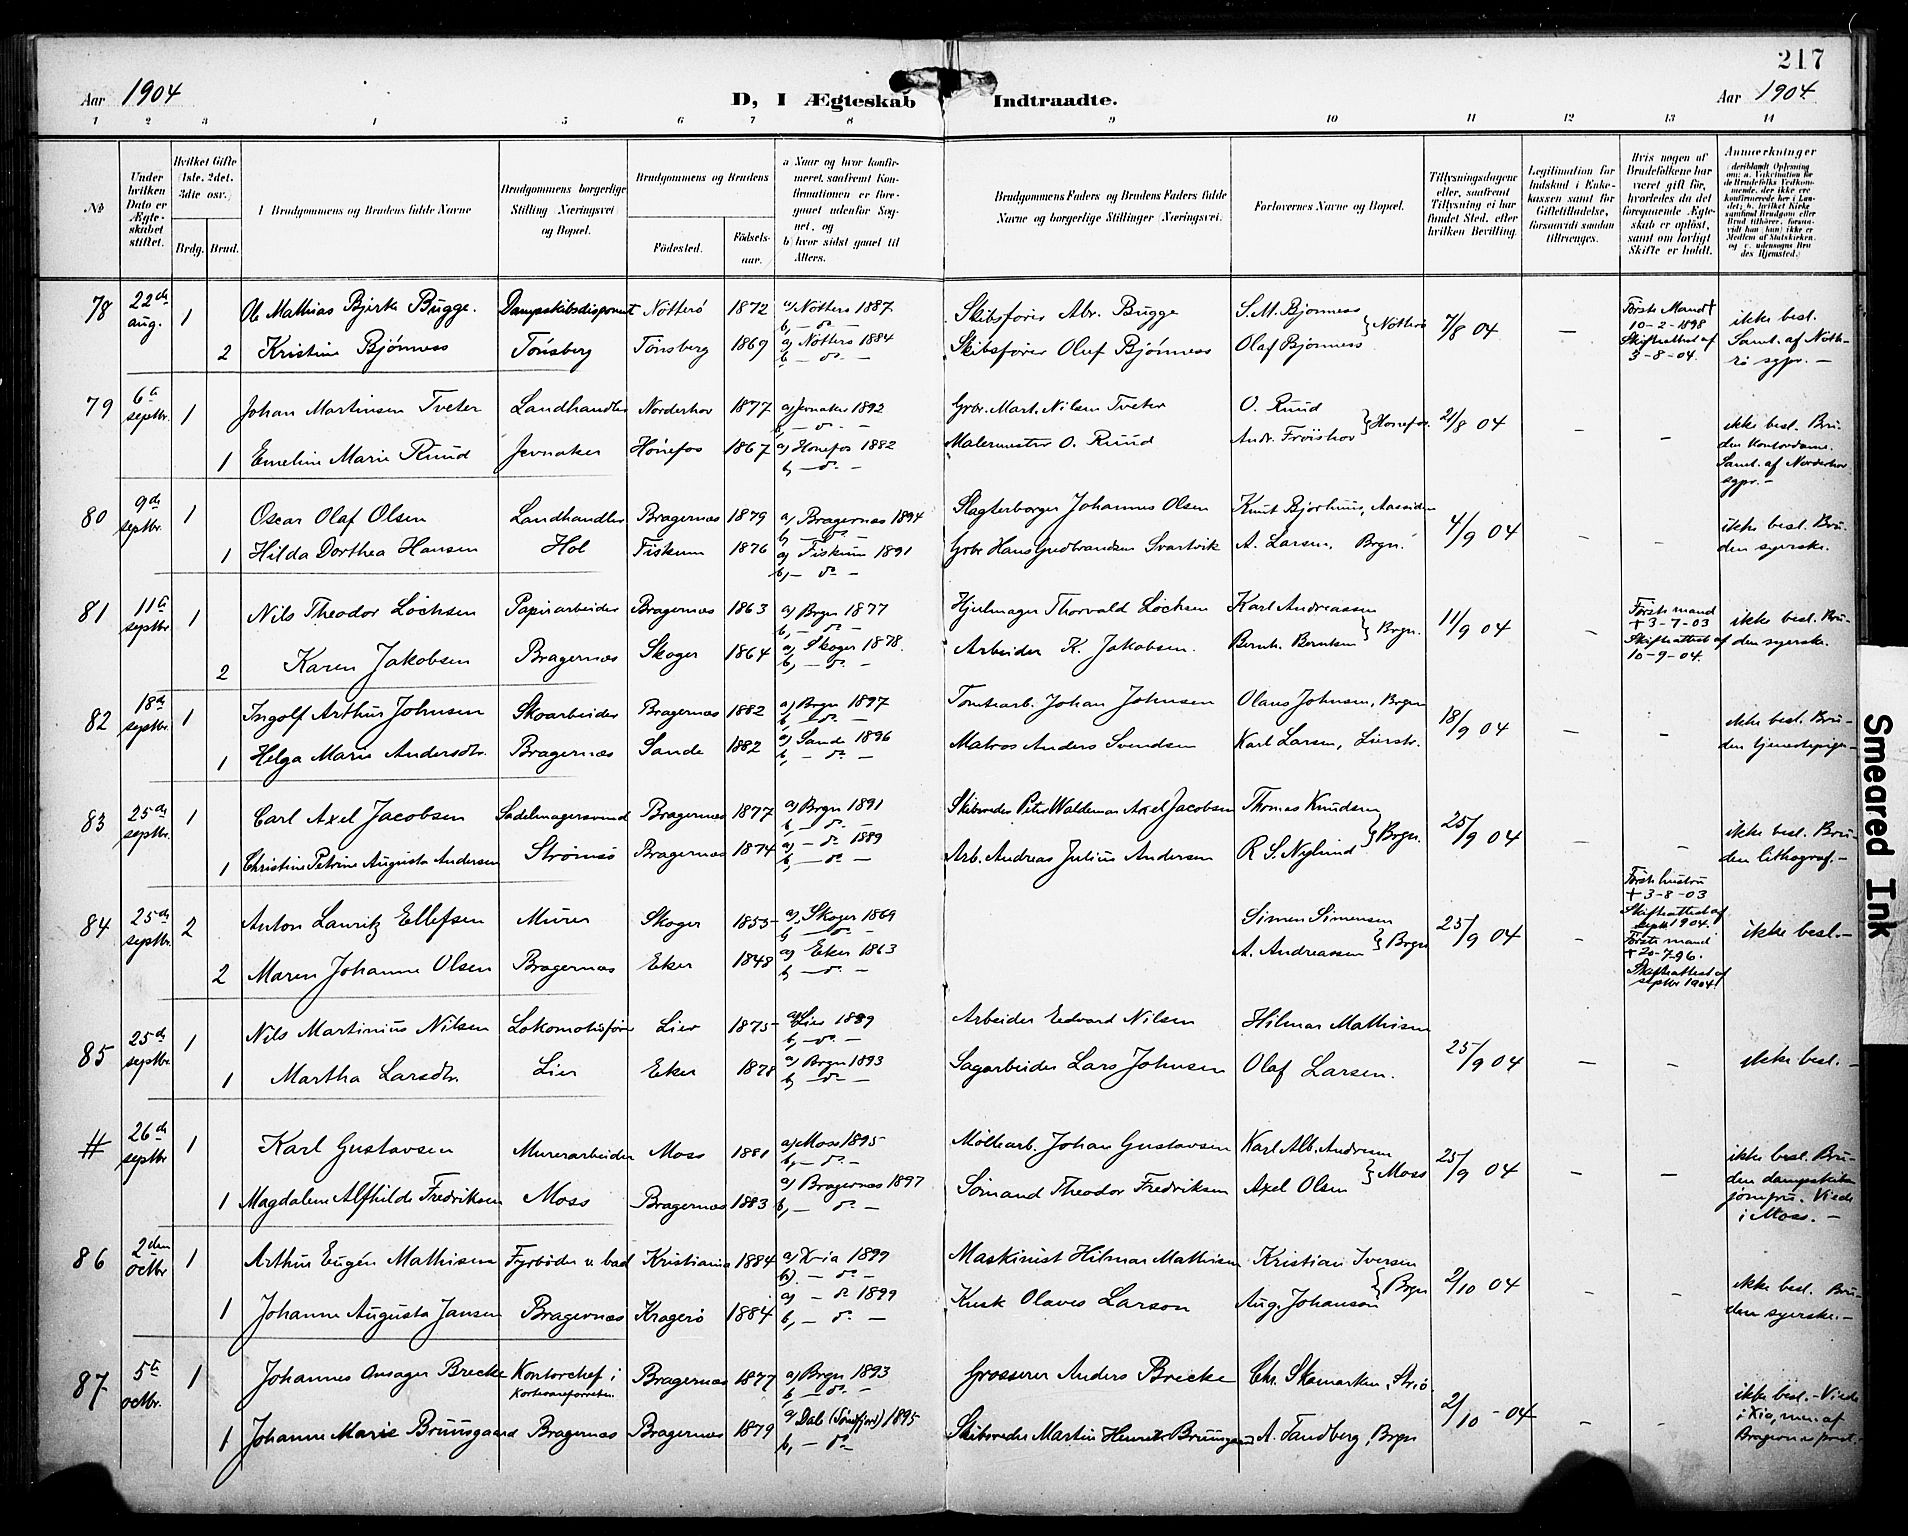 217
Aar 1904
D, I Ægteskab Indtraadte.
Aar 1904.
1 2 3 4 5 6 7 8 9 10 11 12 13 14
№
Under hvilken Dato er Ægteskabet stiftet.
Hvilket Gifte (1ste, 2det, 3die osv.)
Brdg. Brud.
Brudgommens og Brudens fulde Navne
Brudgommens borgerlige Stilling (Næringsvei) og Bopæl.
Brudgommens og Brudens
Fødested. Fødselsaar.
a Naar og hvor konfirmeret, saafremt Konfirmationen er foregaaet udenfor Sognet, og
b) hvor sidst gaaet til Alters.
Brudgommens Faders og Brudens Faders fulde Navne og borgerlige Stillinger (Næringsvei.
Forlovernes Navne og Bopæl.
Tillysningsdagene eller, saafremt Tillysning ei har fundet Sted, efter hvilken Bevilling.
Legitimation for Indskud i Enkekassen samt for Giftetilladelse, forsaavidt saadan tiltrænges.
Hvis nogen af Brudefolkene har været gift før, hvorledes da det foregaaende Ægteskab er opløst, samt om lovligt Skifte er holdt.
Anmærkninger
78 22de aug. 1 Ole Mathias Bjerk Bugge. Dampskibsdisponent Nötterö 1872 a) Nötterö 1887 b, – do – Skibsfører Abr. Bugge S. M. Bjønness } Nötterö 7/8 04 – Første Mand † 10-2-1898 Skifteattest af 3-8-04. ikke besl. Saml. af Nötterö sgpr. –
2 Kristine Bjønness Tønsberg Tønsberg 1869 a) Nötterö 1884 b – do – Skibsfører Oluf Bjønness Olaf Bjønness
79 6te septbr. 1 Johan Martinsen Tveter Landhandler Norderhov 1877 a) Jevnaker 1892 b, – do – Gbr. Mart. Nilsen Tveter O. Ruud } Hønefos. 21/8 04 – – ikke besl. Bruden Kontordame. Saml. af Norderhov sgpr. –
1 Emeline Marie Ruud Jevnaker Hønefos 1867 a) Hønefos 1882 b, – do – Malermester O. Ruud Andr. Frøishov
80 9de septbr. 1 Oscar Olaf Olsen Landhandler Bragernæs 1879 a, Bragernæs 1894 b, – do – Slagterborger Johannes Olsen Knut Bjorhuus, Aassiden 4/9 04 – – ikke besl. Bruden syerske.
1 Hilda Dorthea Hansen Hol Fiskum 1876 a) Fiskum 1891 b, – do – Gbr Hans Gudbrandsen Svartvik A. Larsen, Brgn.
81 11te septbr 1 Nils Theodor Löchsen Papirarbeider Bragernæs 1863 a) Brgn 1877 b, – do – Hjulmager Thorvald Löchsen Karl Andreassen } Brgn. 11/9 04 – Første mand † 3-7-03 Skifteattest af 10-9-04. ikke besl. Bruden syerske.
2 Karen Jakobsen Bragernæs Skoger 1864 a) Skoger 1878. b, – do – Arbeider K. Jakobsen. Bernh. Berntsen
82 18de septbr. 1 Ingolf Arthur Johnsen Skoarbeider Bragernæs 1882 a) Brgn 1897 b, – do – Tomtearb. Johan Johnsen Olaus Johnsen, Brgn 18/9 04 – – ikke besl. Bruden tjenestepige –
1 Helga Marie Andersdtr. Bragernæs Sande 1882 a) Sande 1896 b, – do – Matros Anders Svendsen Karl Larsen, Lierstr.
83 25de septbr. 1 Carl Axel Jacobsen Sadelmagersvend Bragernæs 1877 a) Brgn 1891 b, – do – Skibsreder Peter Waldemar Axel Jacobsen Thomas Knudsen } Brgn. 25/9 04 – – ikke besl. Bruden lithograf. –
1 Christine Petrine Augusta Andersen Strømsö Bragernæs 1874 a) – do 1889 b, – do – Arb. Andreas Julius Andersen R S. Nylund
84 25de septbr. 2 Anton Lauritz Ellefsen Murer Skoger 1855 a) Skoger 1869 b – do – Simen Simensen } Brgn 25/9 04 – Første hustru † 3-8-03 Skifteattest af sept 1904. Første mand † 20-7-96. Skifteattest af septbr 1904. ikke besl. –
2 Maren Johanne Olsen Bragernæs Eker 1848 a) Eker 1863 b – do – A. Andreassen
85 25de septbr. 1 Nils Martinius Nilsen Lokomotivfører Lier 1875 a) Lier 1889 b, – do – Arbeider Edvard Nilsen Hilmar Mathisen 25/9 04 – – ikke besl. –
1 Martha Larsdtr. Lier Eker 1878 a) Brgn 1893 b – do – Sagarbeider Lars Johnsen Olaf Larsen.
# 26de septbr 1 Karl Gustavsen Murerarbeider Moss 1881 a) Moss 1895 b, – do – Møllearb. Johan Gustavsen Karl Alb. Andresen } Moss 25/9 04 – – ikke besl. Bruden dampskibsjomfru. Viede i Moss. –
1 Magdalene Alfhilde Fredriksen Moss Bragernæs 1883 a) Bragernæs 1897 b, – do – Sømand Theodor Fredriksen Axel Olsen
86 2den octbr 1 Arthur Eugén Mathisen Fyrbøder v. bad Kristiania 1884 a) Xria 1899 b). – do – Maskinist Hilmar Mathisen Kristian Iversen } Brgn 2/10 04 – – ikke besl. Bruden syerske. –
1 Johanne Augusta Jansen Bragernæs Kragerö 1884 a) – do 1899 b, – do – Kusk Olaves Larson Aug. Johanson
87 5te octbr. 1 Johannes Ansager Brecke Kontorchef i Bragernæs 1877 a) Brgn 1893 b, – do – Grosserer Anders Brecke Chr. Skomarken, Strö. 2/10 – 04 – – ikke besl. – Viede i Xia, men af Bragernæs præst. –
1 Johanne Marie Bruusgaard Bragernæs Bragernæs 1879 a) Dale (Søndfjord) 1895 b, – do Skibsreder Martin Henrik Bruusgaard A. Tandberg, Brgn
Smeared Ink